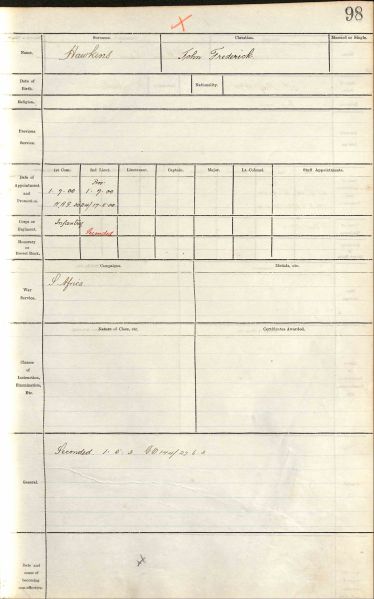 98
Surname. Christian. Married or Single.
Name. Hawkins John Frederick.
Date of Birth. Nationality.
Religion.
Previous Service.
1st Com. 2nd Lieut. Lieutenant. Captain. Major. Lt. Colonel. Staff Appointments.
Date of Appointment and Promotion.
Prov
1. 9. 00 1. 9. 00
Corps or Regiment. Infantry
Seconded
Honorary or Brevet Rank.
Campaigns. Medals, etc.
War Service. S. Africa
Nature of Class, etc. Certificates Awarded.
Classes of Instruction, Examination, Etc.
General. Seconded
Date and cause of becoming non-effective.